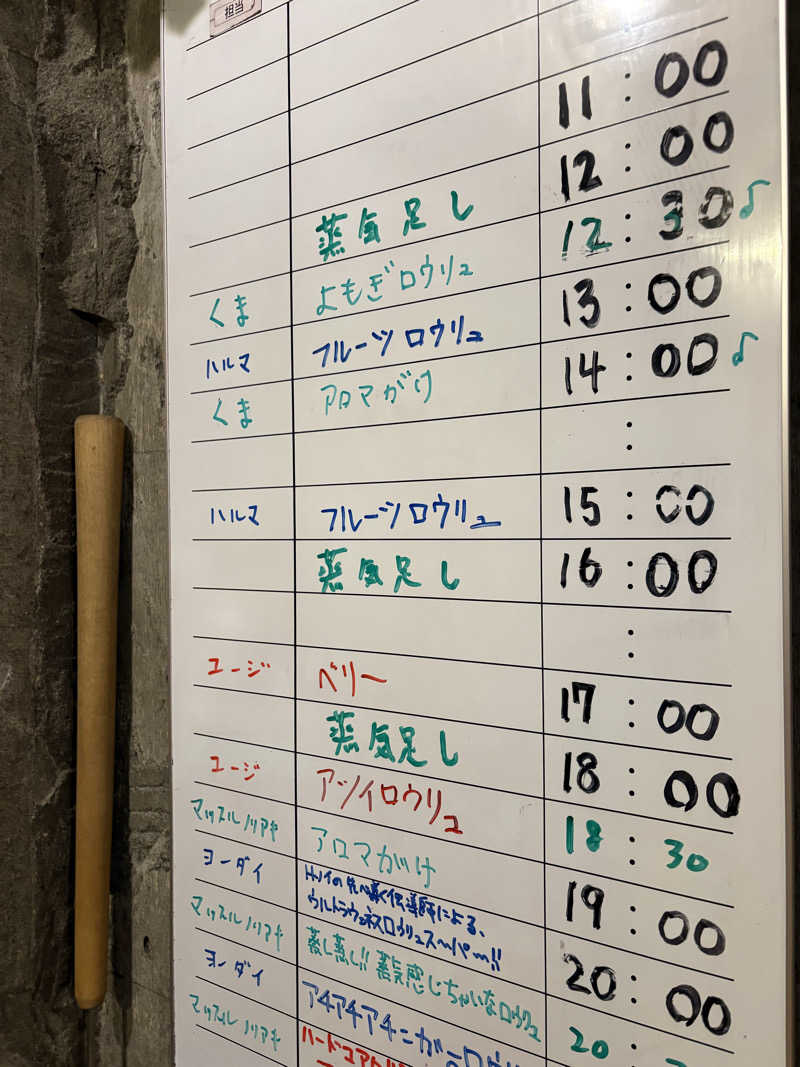 担当
11:00
蒸気足し 12:00
くま よもぎロウリュ 12:30♪
ハルマ フルーツロウリュ 13:00
くま アロマがけ 14:00♪
:
ハルマ フルーツロウリュ 15:00
蒸気足し 16:00
:
ユージ ベリー 17:00
蒸気足し 18:00
ユージ アツイロウリュ 18:30
マッスルノリアキ アロマがけ 19:00
ヨーダイ 伝導師による、 20:00
ウルトラウェネスロウリュスーパー!!
マッスルノリアキ 蒸し蒸し!! 蒸気感じちゃいなロウリュ 20:
ヨーダイ アチアチアチーガーロウリ
マッスルノリアキ ハードコア